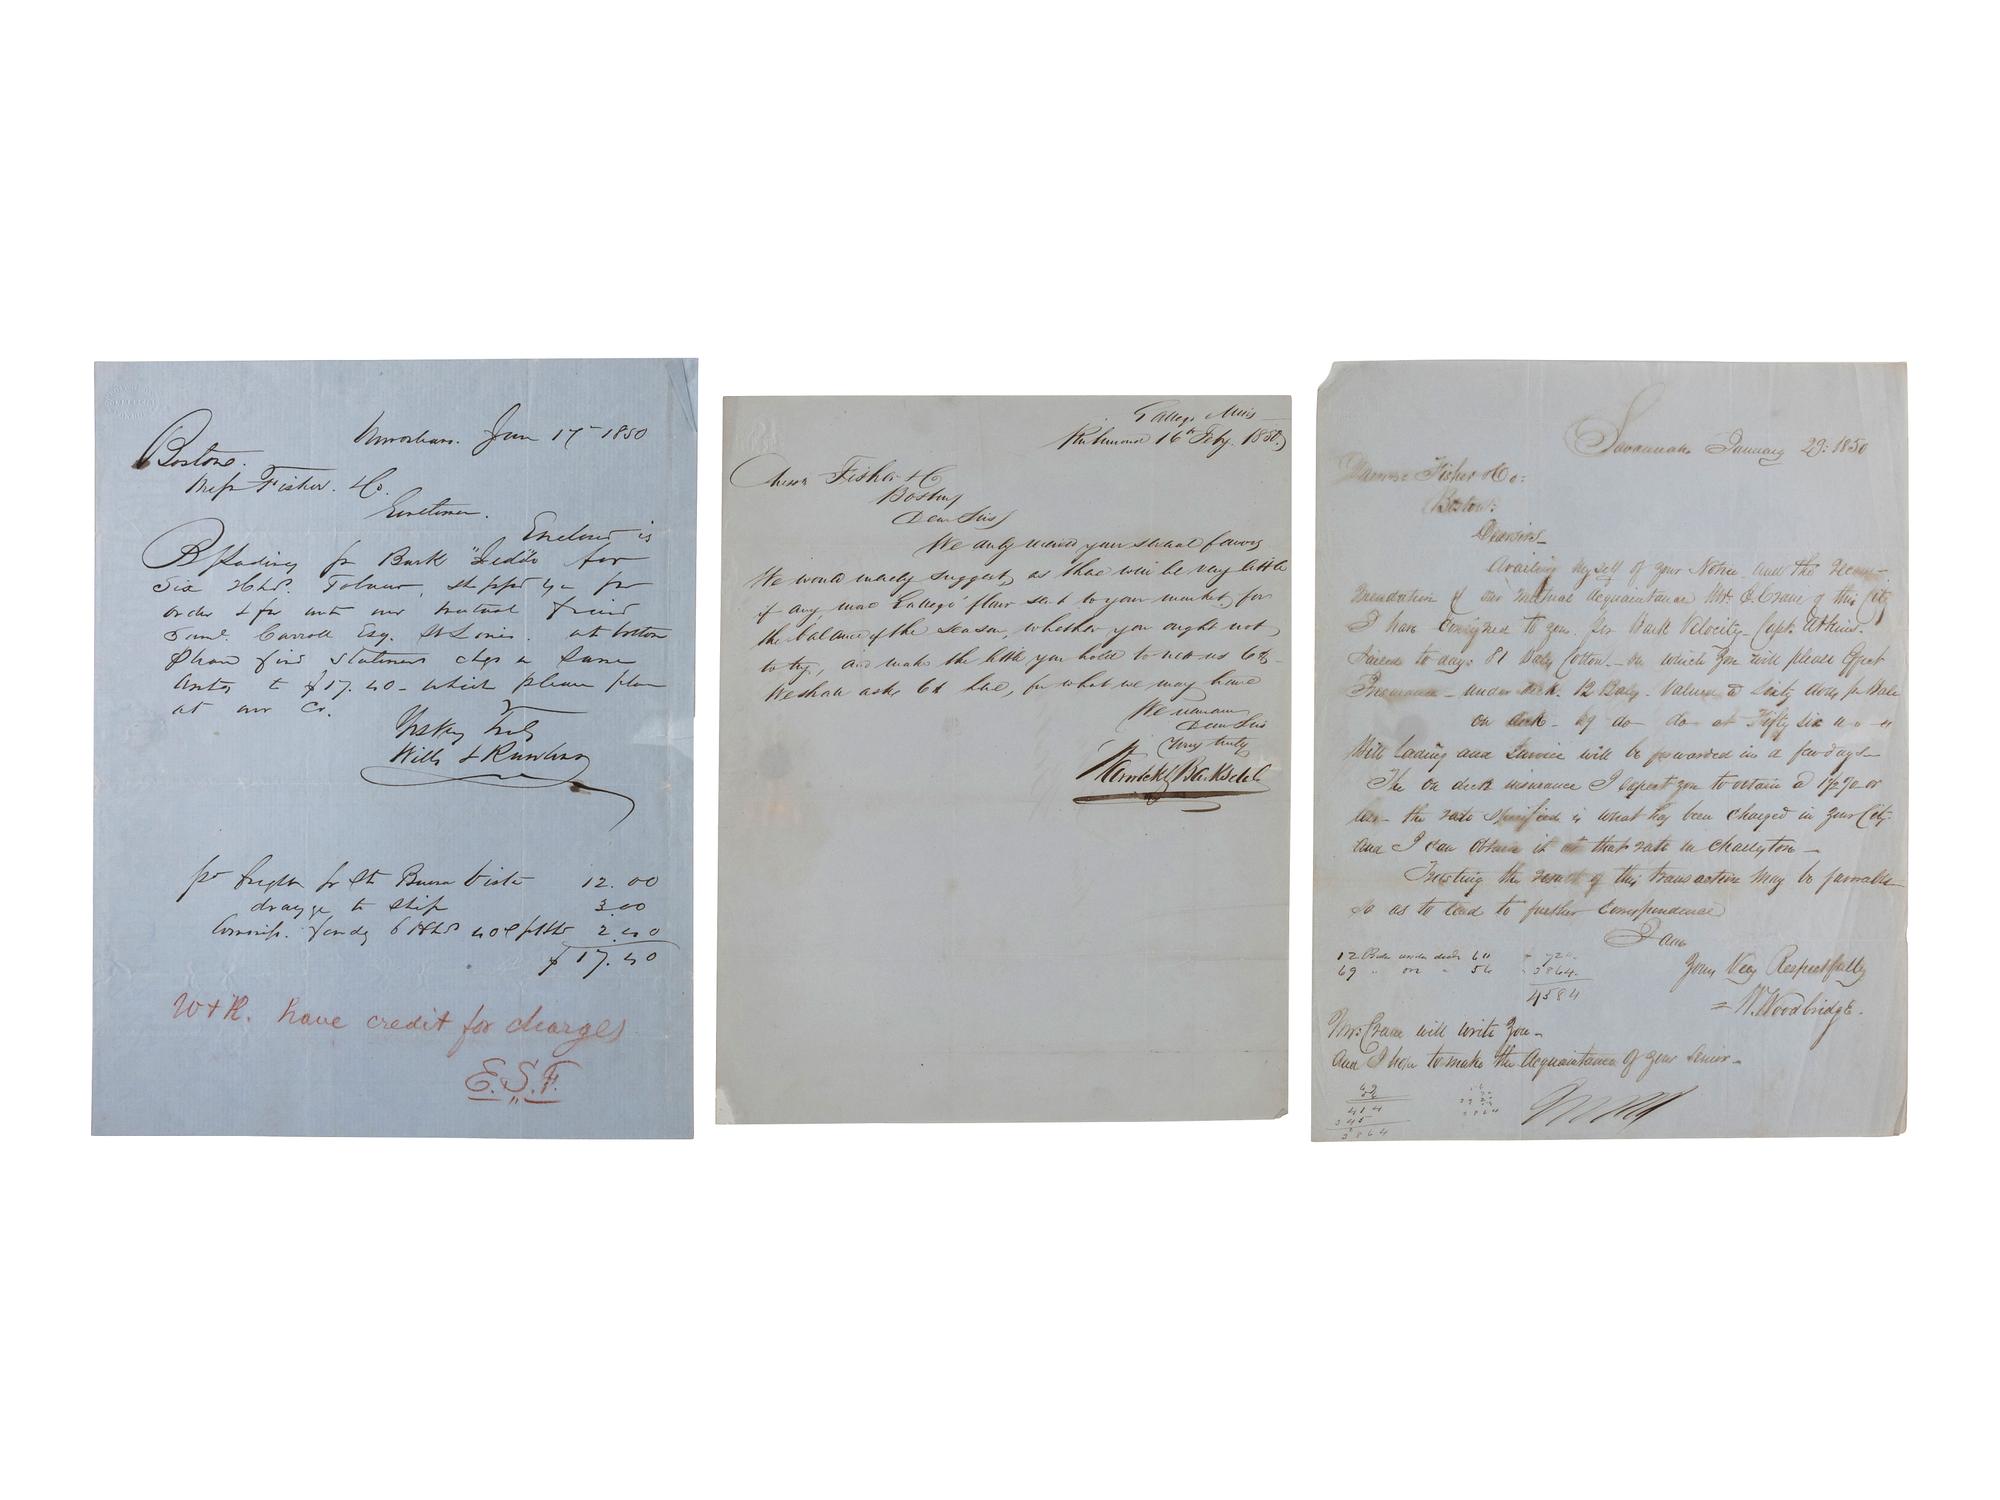 NewOrleans. Jan 17 1850
Boston.
Mess Fisher & Co.
Gentlemen.
Enclosed is
B/Lading pr Bark "Jeddo" for
Six Hhds. Tobacco, shipped you pr
order & for acct our mutual friend
Saml. Carroll Esq. St Louis. at bottom
Please find statement chgs on same
amtg to $17.40 - which please place
at our Cr.
Yrs Very Truly
Wills & Rawlins
pd freight pr Str Buena Vista 12.00
drayge to Ship 3.00
Commiss. Fordg 6 Hhds 40c pHhd 2.40
$17.40
W & R. have credit for charges
E.S.F.
Gallego Mills
Richmond 16th Feby. 1850
Messrs Fisher & Co
Boston
Dear Sirs
We duly received your several favors
We would merely suggest, as there will be very little
if any more Gallego flour sent to your market, for
the balance of the season, whether you ought not
to try, and make the little you hold to net us 6$.
We shall ask 6$ here, for what we may have
We remain
Dear Sirs
Very truly
Warwick & Barksdale
Savannah January 29: 1850
Fisher & Co:
Boston:
Dearsirs
Availing myself of your Notice and the Recom-
mendation of our mutual acquaintance Mr. Crane of this City
I have Consigned to you pr Bark Velocity - Capt. Atkins.
Sailed to day: 81 Bales Cotton - on which you will please Effect
Insurance - under deck. 12 Bales. Valued @ Sixty dolls pr Bale
on deck - 69 do do at Fifty six
Bill Lading and Invoice will be forwarded in a few days -
The on deck insurance I expect you to obtain @ 1½% or
less - the rate specified is what has been charged in your City
and I can obtain it at that rate in Charleston -
Trusting the result of this transaction may be favorable
so as to lead to further Correspondence
I am
12 Bales under deck 60 - 720.
69 " on " 56 - 3864.
4584
Yours Very Respectfully
W. Woodbridge.
Mr. Crane will write you -
And I hope to make the Acquaintance of your Senior -
414
345
3864